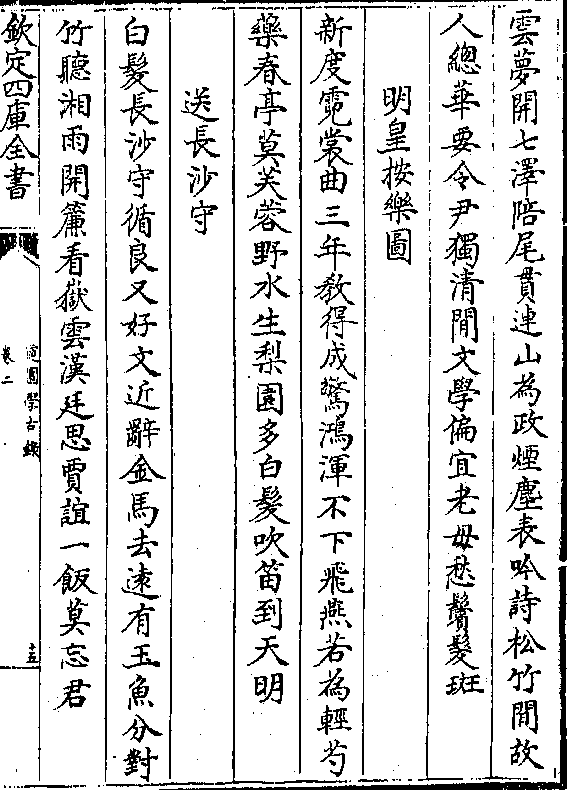 雲夢開七澤陪尾貫連山為政煙塵表吟詩松竹間故
人總華要令尹獨清閒文學偏宜老毋愁鬢髮斑
明皇按樂圖
新度霓裳曲三年教得成驚鴻渾不下飛燕若為輕芍
藥春亭莫芙蓉野水生梨園多白髮吹笛到天明
送長沙守
白髮長沙守循良又好文近辭金馬去遠有玉魚分對
竹聽湘雨開簾看嶽雲漢廷思賈誼一飯莫忘君
欽定四庫全書
道園學古録
卷二
十五